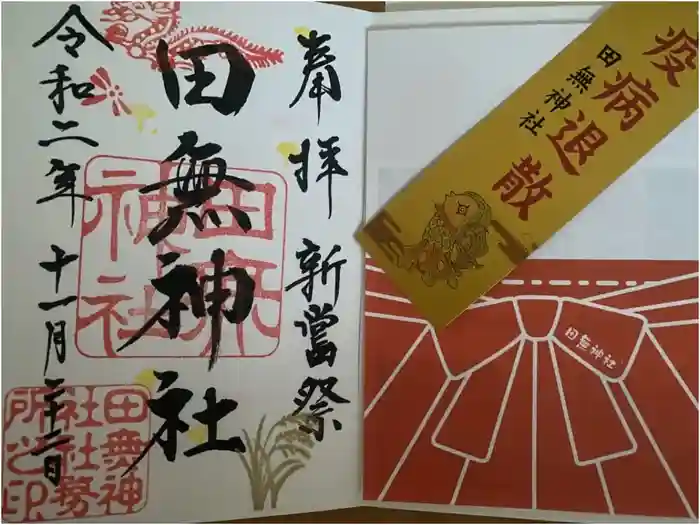 奉拝 新嘗祭
田無神社
令和二年 十一月二十二日
田無神社
田無神社社務所之印
疫病退散
田無神社
田無神社